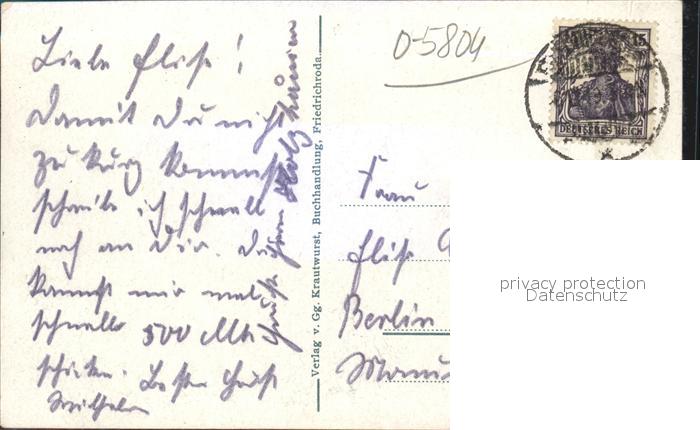 Liebe Elise!
Damit Du nicht
zu kurz kommst
schreibe ich schnell
noch an Dir. Du
kannst mir mal
schnell 500 Mk
schicken. Besten Gruß
Wilhelm
Verlag v. Gg. Krautwurst, Buchhandlung, Friedrichroda.
0-5804
15
DEUTSCHES REICH
Frau
Elise
Berlin
privacy protection
Datenschutz